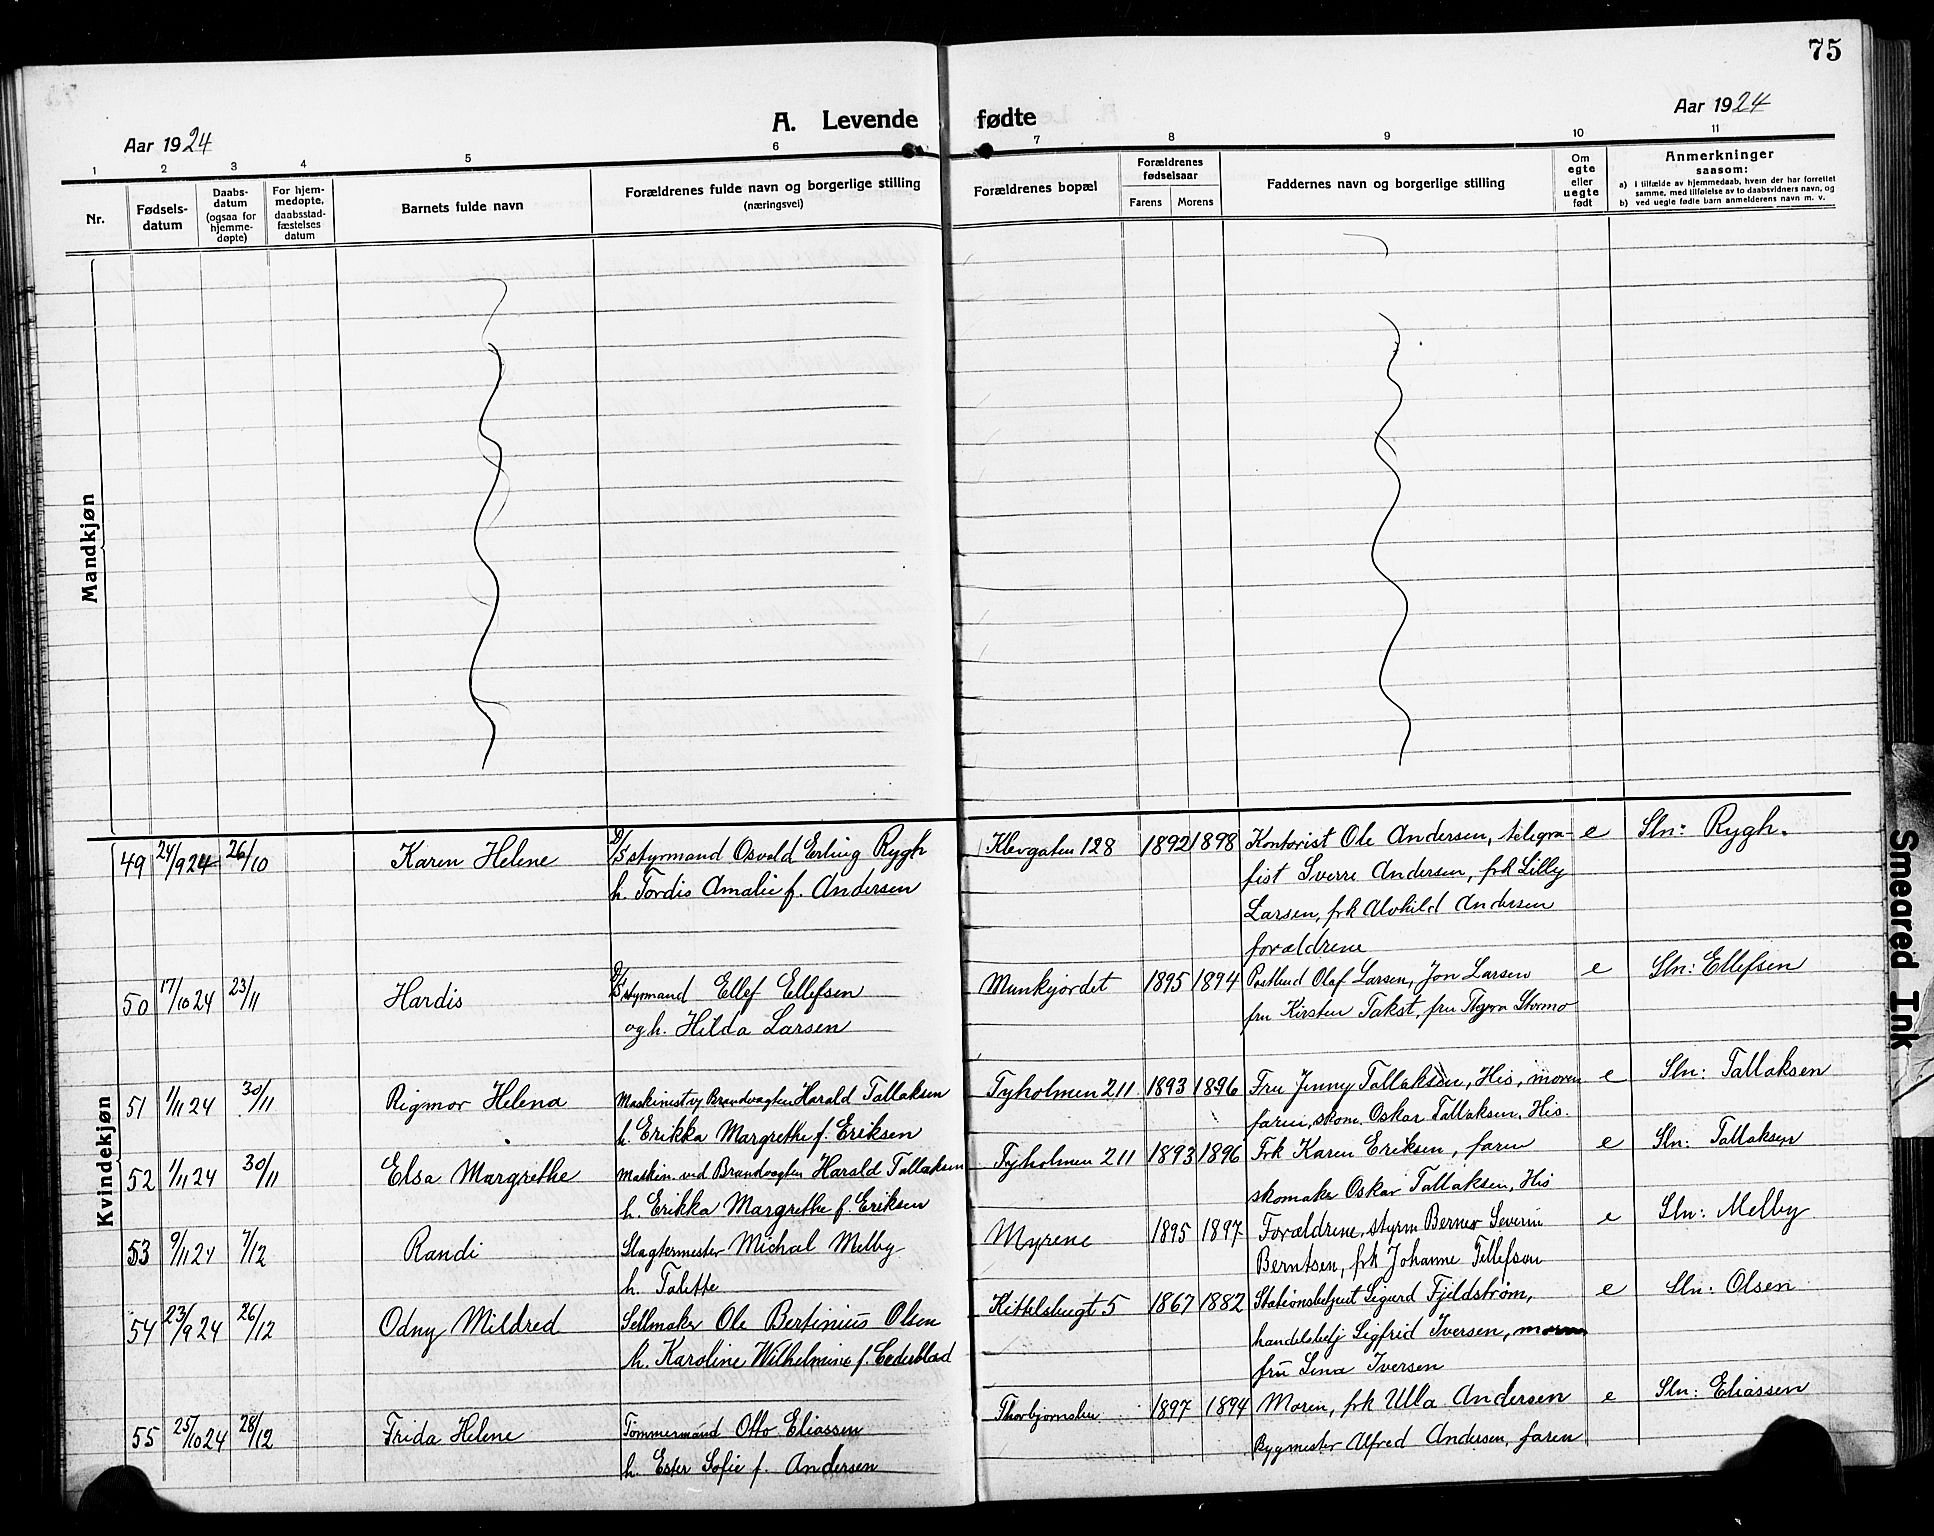 75
Aar 1924
A. Levende fødte
Aar 1924
1 2 3 4 5 6 7 8 9 10 11
Nr.
Fødsels-
datum
Daabs-
datum
(ogsaa for
hjemme-
døpte)
For hjem-
medøpte,
daabsstad-
fæstelses
datum
Barnets fulde navn
Forældrenes fulde navn og borgerlige stilling
(næringsvei)
Forældrenes bopæl
Forældrenes
fødselsaar
Farens Morens
Faddernes navn og borgerlige stilling
Om
egte
eller
uegte
født
Anmerkninger
saasom:
a) i tilfælde av hjemmedaab, hvem der har forrettet
samme, med tilføielse av to daabsvidners navn, og
b) ved uegte fødte barn anmelderens navn m. v.
Mandkjøn
Kvindekjøn
49 24/9 24 26/10 Karen Helene
styrmand Osvald Erling Rygh
h. Tordis Amalie f. Andersen
Klevgaten 128 1892 1898
Kontorist Ole Andersen, telegra-
fist Sverre Andersen, frk Lilly
Larsen, frk Alvhild Andersen
forældrene
e Sln: Rygh.
50 17/10 24 23/11 Hardis
styrmand Ellef Ellefsen
og h. Hilda Larsen
Munkjordet 1895 1894
Postbud Olaf Larsen, Jon Larsen
fru Kirsten Takst, fru Thyra Stormo
e Sln: Ellefsen
51 1/11 24 30/11 Rigmor Helena
Maskinist v/ Brandvagten Harald Tallaksen
h. Erikka Margrethe f. Eriksen
Tyholmen 211 1893 1896
Fru Jenny Tallaksen, His, moren
faren, skom. Oskar Tallaksen, His.
e Sln: Tallaksen
52 1/11 24 30/11 Elsa Margrethe
Maskin. ved Brandvagten Harald Tallaksen
h. Erikka Margrethe f. Eriksen
Tyholmen 211 1893 1896
Frk Karen Eriksen, faren
skomaker Oskar Tallaksen, His
e Sln: Tallaksen
53 9/11 24 7/12 Randi
Slagtermester Michal Melby
h. Talette
Myrene 1895 1897
Forældrene, styrm Berner Severin
Berntsen, frk Johanne Tellefsen
e Sln: Melby
54 23/9 24 26/12 Odny Mildred
Seilmaker Ole Bertinius Olsen
h. Karoline Wilhelmine f. Cederblad
Kittelsbugt 5 1867 1882
Stationsbetjent Sigurd Fjeldstrøm,
handelsbetj Sigfrid Iversen, moren
fru Lina Iversen
e Sln: Olsen
55 25/10 24 28/12 Frida Helene
Tømmermand Otto Eliassen
h. Ester Sofie f. Andersen
Thorbjørnsbu 1897 1894
Moren, frk Ulla Andersen
Bygmester Alfred Andersen, faren
e Sln: Eliassen
Smeared Ink